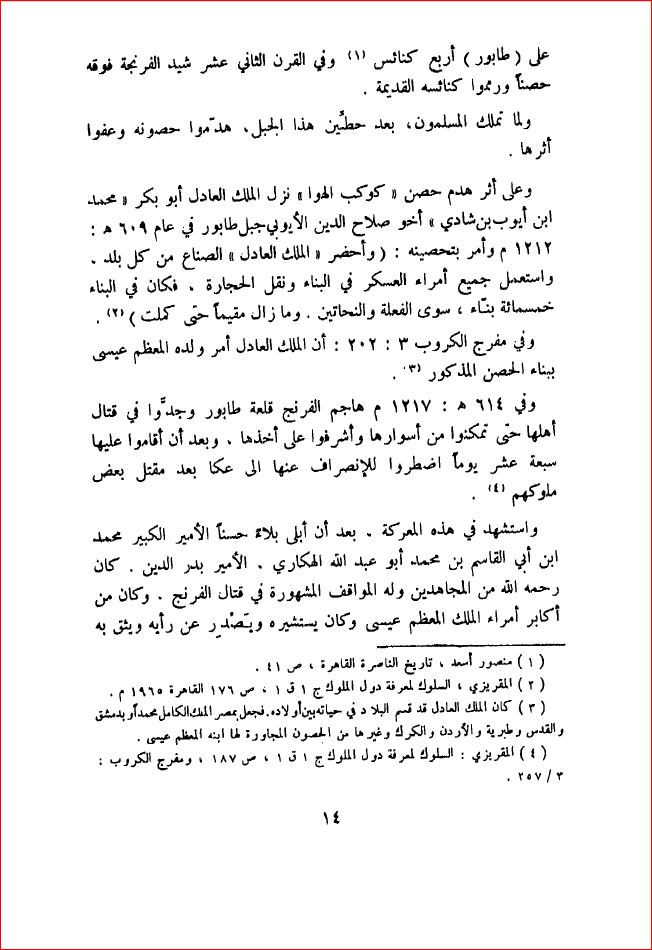 على ( طابور ) أربع كنائس (١) وفي القرن الثاني عشر شيد الفرنجة فوقه
حصناً ورمموا كنائسه القديمة .
ولما تملك المسلمون، بعد حطّين هذا الجبل، هدّموا حصونه وعفوا
أثرها .
وعلى أثر هدم حصن « كوكب الهوا » نزل الملك العادل أبو بكر « محمد
ابن أيوب بن شادي » أخو صلاح الدين الأيوبي جبل طابور في عام ٦٠٩ هـ :
١٢١٢ م وأمر بتحصينه : ( وأحضر « الملك العادل » الصناع من كل بلد .
واستعمل جميع أمراء العسكر في البناء ونقل الحجارة . فكان في البناء
خمسمائة بنّاء ، سوى الفعلة والنحاتين . وما زال مقيماً حتى كملت ) (٢) .
وفي مفرج الكروب ٣ : ٢٠٢ : أن الملك العادل أمر ولده المعظم عيسى
ببناء الحصن المذكور (٣) .
وفي ٦١٤ هـ : ١٢١٧ م هاجم الفرنج قلعة طابور وجدَّوا في قتال
أهلها حتى تمكنوا من أسوارها وأشرفوا على أخذها . وبعد أن أقاموا عليها
سبعة عشر يوماً اضطروا للإنصراف عنها الى عكا بعد مقتل بعض
ملوكهم (٤) .
واستشهد في هذه المعركة . بعد أن أبلى بلاءً حسناً الأمير الكبير محمد
ابن أبي القاسم بن محمد أبو عبد الله الهكاري . الأمير بدر الدين . كان
رحمه الله من المجاهدين وله المواقف المشهورة في قتال الفرنج . وكان من
أكابر أمراء الملك المعظم عيسى وكان يستشيره ويَصْدِر عن رأيه ويثق به
( ١ ) منصور أسعد ، تاريخ الناصرة القاهرة ، ص ٤١ .
( ٢ ) المقريزي ، السلوك لمعرفة دول الملوك ج ١ ق ١ ، ص ١٧٦ القاهرة ١٩٦٥ م .
( ٣ ) كان الملك العادل قد قسم البلاد في حياته بين أولاده. فجعل بمصر الملك الكامل محمداً وبدمشق
والقدس وطبرية والأردن والكرك وغيرها من الحصون المجاورة لها ابنه المعظم عيسى .
( ٤ ) المقريزي : السلوك لمعرفة دول الملوك ج ١ ق ١ ، ص ١٨٧ ، ومفرج الكروب :
٣ / ٢٥٧ .
١٤